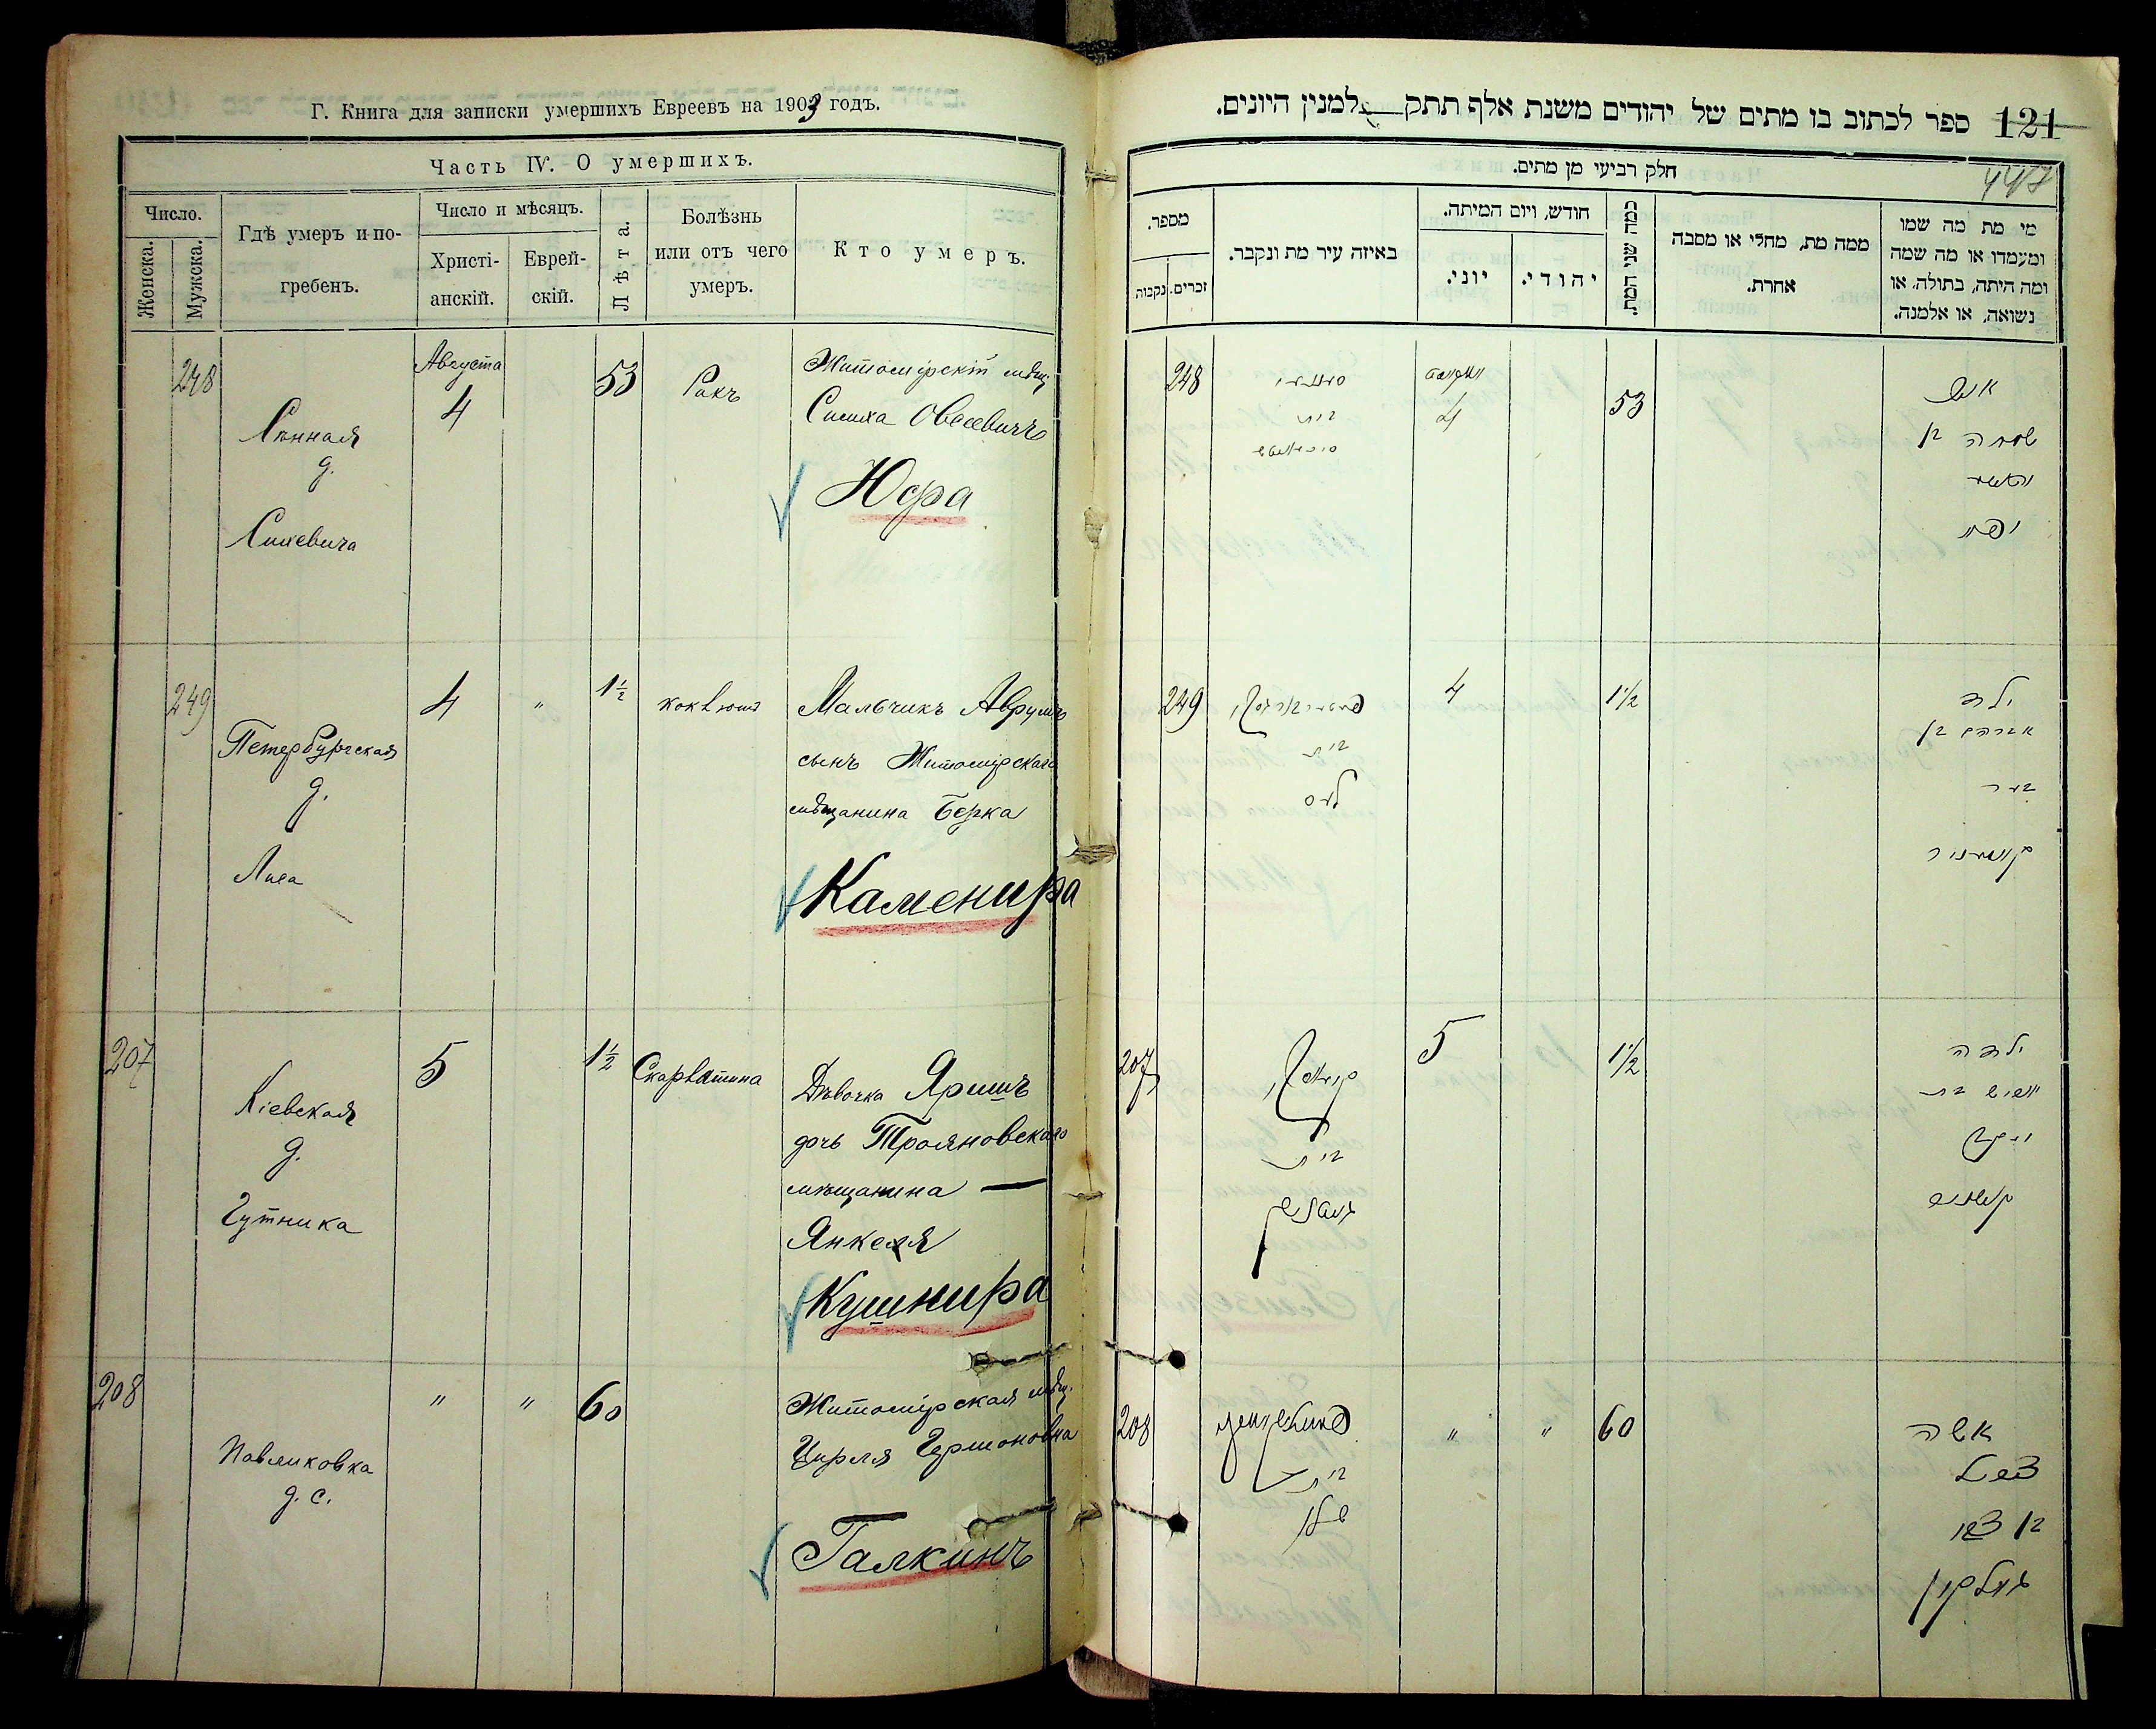 Г. Книга для записки умершихъ Евреевъ на 1903 годъ.
Часть IV. О умершихъ.
Число.
Женска.
Мужска.
Гдѣ умеръ и по-
гребенъ.
Число и мѣсяцъ.
Христі-
анскій.
Еврей-
скій.
Лѣта.
Болѣзнь
или отъ чего
умеръ.
Кто умеръ.
248
Сѣнная
д.
Августа
4
53
Ракъ
Житомірскій мѣщ.
Симха Овсеевичъ
Юфра
249
Петербургская
д.
Лиса
4
"
1½
коклюшъ
Мальчикъ Аврумъ
сынъ Житомірскаго
мѣщанина Берка
Каменира
207
Кіевская
д.
Гутника
5
1½
Скарлатина
Дѣвочка
дочь Трояновскаго
мѣщанина —
Янкеля
Кушнира
208
Павликовка
д. с.
"
"
60
Житомірская мѣщ.
Цирля
Галкинъ
ספר לכתוב בו מתים של יהודים משנת אלף תתק למנין היונים.
121
447
חלק רביעי מן מתים.
מספר.
זכרים.
נקבות
באיזה עיר מת ונקבר.
חודש, ויום המיתה.
יוני.
יהודי.
כמה שני המת.
ממה מת, מחלי או מסבה
אחרת.
מי מת מה שמו
ומעמדו או מה שמה
ומה היתה, בתולה, או
נשואה, או אלמנה.
248
בית
אויגוסט
4
53
איש
שמחה בן
249
בית
4
1½
ילד
אברהם בן
בער
קאמעניר
207
בית
5
1½
ילדה
יעקב
קושניר
208
בית
"
"
60
אשה
גאלקין